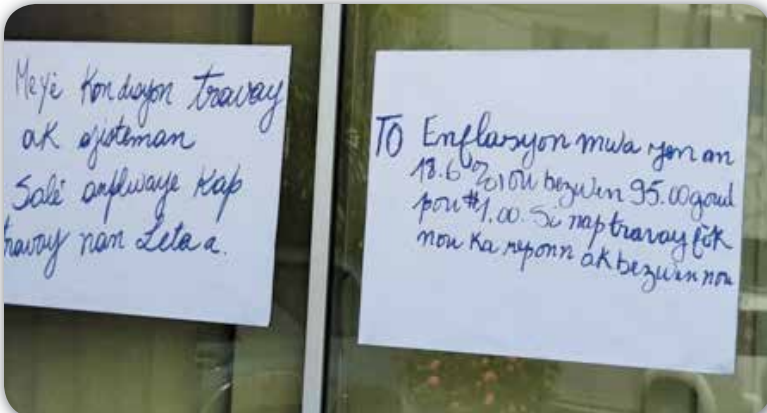 Meyè Kondisyon travay
ak ajisteman
Salè anplwaye Kap
travay nan Leta a.
TO Enflasyon mwa jen an
18.6 % ou bezwen 95.00 goud
pou $1.00. Si nap travay fòk
nou ka reponn ak bezwen nou